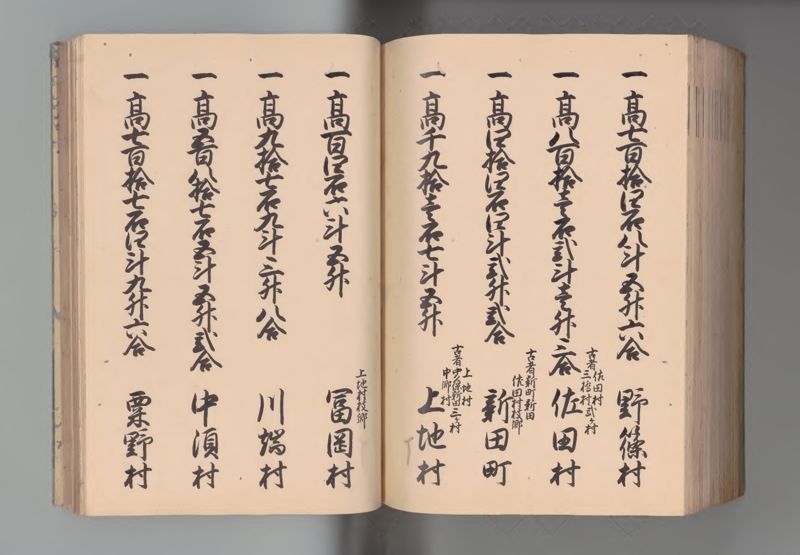 一高七百拾四石八斗五升六合 野篠村
古者佐田村
三橋村弐ヶ村
一高八百拾壱石弐斗壱升三合 佐田村
古者新町新田
佐田村枝郷
一高四拾四石四斗弐升弐合 新田町
上地村
古者中郷村三ヶ村
一高千九拾壱石七斗五升 上地村
上地村枝郷
一高百四石六斗五升 冨岡村
一高九拾七石九斗三升八合 川端村
一高五百八拾七石五斗五升弐合 中須村
一高七百拾七石四斗九升六合 粟野村